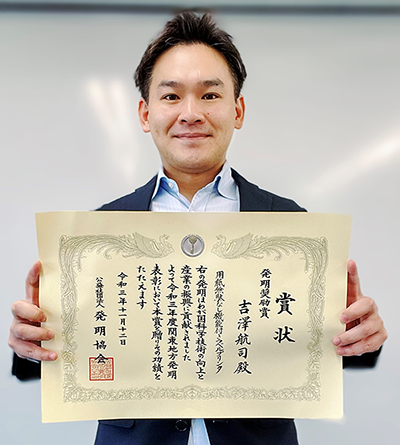 賞状
発明奨励賞
用紙無駄なし機能付ラベルプリンタ
吉澤航司殿
右の発明はわが国科学技術の向上と
産業の振興に貢献されました
よって令和三年度関東地方発明
表彰において本賞を贈りその功績を
たたえます
令和三年十一月十一日
公益社団法人 発明協会